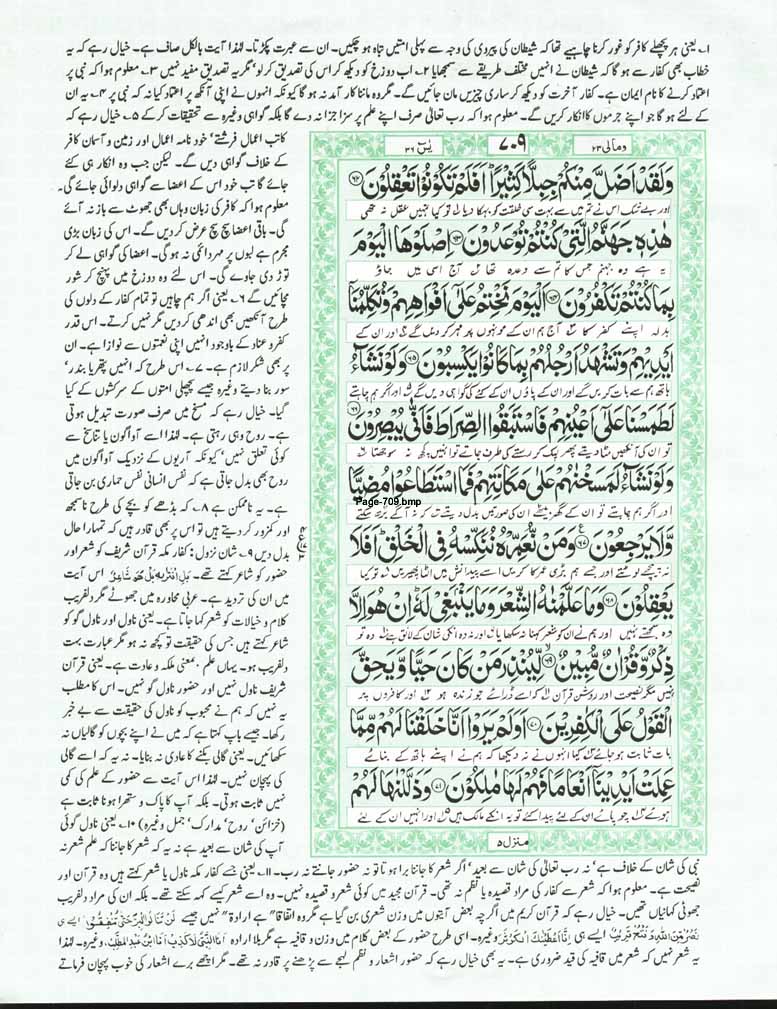 ۱۔ یعنی ہر پچھلے کافر کو غور کرنا چاہیے تھا کہ شیطان کی پیروی کی وجہ سے پہلی امتیں تباہ ہو چکیں۔ ان سے عبرت پکڑتا۔ لہٰذا آیت بالکل صاف ہے۔ خیال رہے کہ یہ
خطاب بھی کفار سے ہو گا کہ شیطان نے انہیں مختلف طریقے سے سمجھایا ۲۔ اب دوزخ کو دیکھ کر اس کی تصدیق کر لو‘ مگر یہ تصدیق مفید نہیں ۳۔ معلوم ہوا کہ نبی پر
اعتماد کرنے کا نام ایمان ہے۔ کفار آخرت کو دیکھ کر ساری چیزیں مان جائیں گے۔ مگر وہ ماننا کار آمد نہ ہو گا کیونکہ انہوں نے اپنی آنکھ پر اعتماد کیا نہ کہ نبی پر ۴۔ یہ ان
کے لئے ہو گا جو اپنے جرموں کا انکار کریں گے۔ معلوم ہوا کہ رب تعالیٰ صرف اپنے علم پر سزا جزا نہ دے گا بلکہ گواہی وغیرہ سے تحقیقات کر کے ۵۔ خیال رہے کہ
ومالی ۲۳
۷۰۹
یٰسٓ ۳۶
وَلَقَدْ اَضَلَّ مِنْكُمْ جِبِلًّا كَثِیْرًاؕ اَفَلَمْ تَكُوْنُوْا تَعْقِلُوْنَ ﴿۶۲﴾
اور بے شک اس نے تم میں سے بہت سی خلقت کو بہکا دیا ۱ تو کیا تمہیں عقل نہ تھی
هٰذِهٖ جَهَنَّمُ الَّتِیْ كُنْتُمْ تُوْعَدُوْنَ ﴿۶۳﴾ اِصْلَوْهَا الْیَوْمَ
یہ ہے وہ جہنم جس کا تم سے وعدہ تھا ۲ آج اسی میں جاؤ
بِمَا كُنْتُمْ تَكْفُرُوْنَ ﴿۶۴﴾ اَلْیَوْمَ نَخْتِمُ عَلٰۤى اَفْوَاهِهِمْ وَتُكَلِّمُنَاۤ
بدلہ اپنے کفر کا ۳ آج ہم ان کے مونہوں پر مہر کر دیں گے ۴ اور ان کے
اَیْدِیْهِمْ وَتَشْهَدُ اَرْجُلُهُمْ بِمَا كَانُوْا یَكْسِبُوْنَ ﴿۶۵﴾ وَلَوْ نَشَآءُ
ہاتھ ہم سے بات کریں گے اور ان کے پاؤں ان کے کئے کی گواہی دیں گے ۵ اور اگر ہم چاہتے
لَطَمَسْنَا عَلٰۤى اَعْیُنِهِمْ فَاسْتَبَقُوا الصِّرَاطَ فَاَنّٰى یُبْصِرُوْنَ ﴿۶۶﴾
تو ان کی آنکھیں مٹا دیتے پھر لپک کر رستے کی طرف جاتے تو انہیں کچھ نہ سوجھتا ۶
وَلَوْ نَشَآءُ لَمَسَخْنٰهُمْ عَلٰى مَكَانَتِهِمْ فَمَا اسْتَطَاعُوْا مُضِیًّا
اور اگر ہم چاہتے تو ان کے گھر بیٹھے ان کی صورتیں بدل دیتے ۷ کہ نہ آگے بڑھ سکتے
Page-709.bmp
وَّلَا یَرْجِعُوْنَ ﴿۶۷﴾ وَمَنْ نُّعَمِّرْهُ نُنَكِّسْهُ فِی الْخَلْقِؕ اَفَلَا
نہ پیچھے لوٹتے اور جسے ہم بڑی عمر کا کریں اسے پیدائش میں الٹا پھیریں ۸ تو کیا
یَعْقِلُوْنَ ﴿۶۸﴾ وَمَا عَلَّمْنٰهُ الشِّعْرَ وَمَا یَنْۢبَغِیْ لَهٗؕ اِنْ هُوَ اِلَّا
وہ سمجھتے نہیں اور ہم نے ان کو شعر کہنا نہ سکھایا ۹ اور نہ وہ انکی شان کے لائق ہے ۱۰ وہ تو
ذِكْرٌ وَّقُرْاٰنٌ مُّبِیْنٌ ﴿۶۹﴾ لِّیُنْذِرَ مَنْ كَانَ حَیًّا وَّیَحِقَّ
نہیں مگر نصیحت اور روشن قرآن ۱۱ کہ اسے ڈرائے جو زندہ ہو اور کافروں پر
الْقَوْلُ عَلَى الْكٰفِرِیْنَ ﴿۷۰﴾ اَوَلَمْ یَرَوْا اَنَّا خَلَقْنَا لَهُمْ مِّمَّا
بات ثابت ہو جائے کیا انہوں نے نہ دیکھا کہ ہم نے اپنے ہاتھ کے بنائے
عَمِلَتْ اَیْدِیْنَاۤ اَنْعَامًا فَهُمْ لَهَا مٰلِكُوْنَ ﴿۷۱﴾ وَذَلَّلْنٰهَا لَهُمْ
ہوئے چوپائے ان کے لئے پیدا کئے تو یہ انکے مالک ہیں اور انہیں ان کے لئے
منزل ۵
کاتب اعمال فرشتے‘ خود نامہ اعمال اور زمین و آسمان کافر
کے خلاف گواہی دیں گے۔ لیکن جب وہ انکار ہی کئے
جائے گا تب خود اس کے اعضا سے گواہی دلوائی جائے گی۔
معلوم ہوا کہ کافر کی زبان وہاں بھی جھوٹ سے باز نہ آئے
گی۔ باقی اعضا سچ سچ عرض کر دیں گے۔ اس کی زبان بڑی
مجرم ہے لبوں پر مہر دائمی نہ ہو گی۔ اعضا کی گواہی لے کر
توڑ دی جاوے گی۔ اس لئے وہ دوزخ میں پہنچ کر شور
مچائیں گے ۶۔ یعنی اگر ہم چاہیں تو تمام کفار کے دلوں کی
طرح آنکھیں بھی اندھی کر دیں مگر نہیں کرتے۔ اس قدر
کفر و عناد کے باوجود انہیں اپنی نعمتوں سے نوازا ہے۔ ان
پر بھی شکر لازم ہے۔ ۷۔ اس طرح کہ انہیں پتھر یا بندر‘
سور بنا دیتے وغیرہ جیسے پچھلی امتوں کے سرکشوں کے کیا
گیا۔ خیال رہے کہ مسخ میں صرف صورت تبدیل ہوتی
ہے۔ روح وہی رہتی ہے۔ لہٰذا اسے آواگون یا تناسخ سے
کوئی تعلق نہیں‘ کیونکہ آریوں کے نزدیک آواگون میں
روح بھی بدل جاتی ہے کہ نفس انسانی نفس حماری بن جاتی
ہے۔ یہ ناممکن ہے ۸۔ کہ بڈھے کو بچے کی طرح ناسمجھ
اور کمزور کر دیتے ہیں تو اس پر بھی قادر ہیں کہ تمہارا حال
بدل دیں ۹۔ شان نزول: کفار مکہ قرآن شریف کو شعر اور
حضور کو شاعر کہتے تھے۔ بَلِ افْتَرٰىهُ بَلْ هُوَ شَاعِرٌ اس آیت
میں ان کی تردید ہے۔ عربی محاورہ میں جھوٹے مگر دلفریب
کلام و خیالات کو شعر کہا جاتا ہے۔ یعنی ناول اور ناول گو کو
شاعر کہتے ہیں جس کی حقیقت تو کچھ نہ ہو مگر عبارت بہت
دلفریب ہو۔ یہاں علم‘ بمعنی ملکہ و عادت ہے۔ یعنی قرآن
شریف ناول نہیں اور حضور ناول گو نہیں۔ اس کا مطلب
یہ نہیں کہ ہم نے محبوب کو ناول کی حقیقت سے بے خبر
رکھا۔ جیسے باپ کہتا ہے کہ میں نے اپنے بچوں کو گالیاں نہ
سکھائیں۔ یعنی گالی بکنے کا عادی نہ بنایا۔ نہ یہ کہ اسے گالی
کی پہچان نہیں۔ لہٰذا اس آیت سے حضور کے علم کی کمی
نہیں ثابت ہوتی۔ بلکہ آپ کا پاک و ستھرا ہونا ثابت ہے
(خزائن‘ روح‘ مدارک‘ جمل وغیرہ) ۱۰۔ یعنی ناول گوئی
آپ کی شان سے بعید ہے نہ یہ کہ شعر کا جاننا کہ علم شعر نہ
نبی کی شان کے خلاف ہے‘ نہ رب تعالیٰ کی شان سے بعید‘ اگر شعر کا جاننا برا ہوتا تو نہ حضور جانتے نہ رب۔ ۱۱۔ یعنی جسے کفار مکہ ناول یا شعر کہتے ہیں وہ قرآن اور
نصیحت ہے۔ معلوم ہوا کہ شعر سے کفار کی مراد قصیدہ یا نظم نہ تھی۔ قرآن مجید میں کوئی شعر و قصیدہ نہیں۔ وہ اسے شعر کیسے کہہ سکتے تھے۔ بلکہ ان کی مراد دلفریب
جھوٹی کہانیاں تھیں۔ خیال رہے کہ قرآن کریم میں اگرچہ بعض آیتوں میں وزن شعری بن گیا ہے مگر وہ اتفاقا“ ہے ارادۃ“ نہیں جیسے لَنْ تَنَالُوا الْبِرَّ حَتّٰى تُنْفِقُوْا ایسے ہی
نَصْرٌ مِّنَ اللّٰهِ وَفَتْحٌ قَرِیْبٌ ایسے ہی اِنَّاۤ اَعْطَیْنٰكَ الْكَوْثَرَ وغیرہ۔ اسی طرح حضور کے بعض کلام میں وزن و قافیہ ہے مگر بلا ارادہ اَنَا النَّبِیُّ لَا كَذِبْ اَنَا ابْنُ عَبْدِ الْمُطَّلِبْ وغیرہ۔ لہٰذا
یہ شعر نہیں کہ شعر میں قافیہ کی قید ضروری ہے۔ یہ بھی خیال رہے کہ حضور اشعار و نظم لہجے سے پڑھنے پر قادر نہ تھے۔ مگر اچھے برے اشعار کی خوب پہچان فرماتے